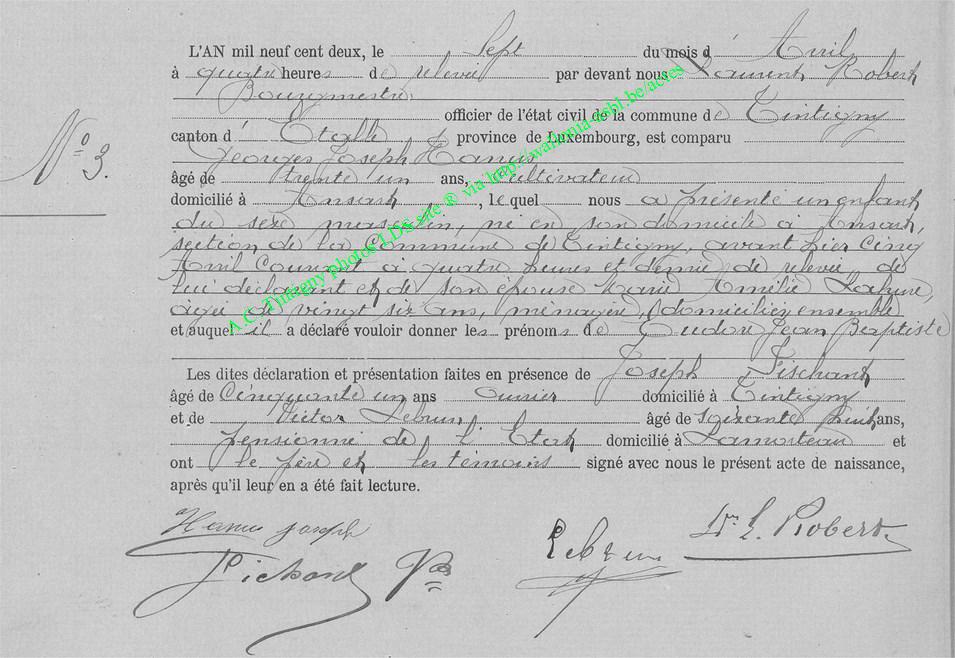 L'AN mil neuf cent deux, le Sept du mois d' Avril
à quatre heures de relevée par devant nous Laurent Robert
Bourgmestre
officier de l'état civil de la commune de Tintigny
canton d' Etalle province de Luxembourg, est comparu
Georges Joseph Hanus
âgé de trente un ans, cultivateur
domicilié à Ansart, lequel nous a présenté un enfant
du sexe masculin, né en son domicile à Ansart,
section de la Commune de Tintigny, avant hier Cinq
Avril Courant à quatre heures et demie de relevée, de
lui déclarant et de son épouse Marie Amélie Lahure,
âgée de vingt six ans, ménagère, domiciliés ensemble
et auquel il a déclaré vouloir donner les prénoms de Eudore Jean Baptiste
Les dites déclaration et présentation faites en présence de Joseph
âgé de Cinquante un ans ouvrier domicilié à Tintigny
et de Victor Lebrun, âgé de soixante huit ans,
pensionné de l'Etat domicilié à Lamorteau et
ont le père et les témoins signé avec nous le présent acte de naissance,
après qu'il leur en a été fait lecture.
N° 3.
Hanus Joseph
Lebrun
L. Robert
Pichard
A.C. Tintigny photos LDS site ® via http://wallonia-asbl.be/actes